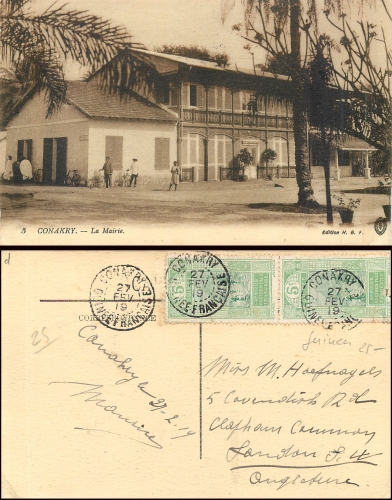 3 CONAKRY. - La Mairie.
Edition H. G. F.
CONAKRY
27
FEV
19
GUINEE FRANCAISE
CONAKRY
27
FEV
19
GUINEE FRANCAISE
CONAKRY
27
FEV
19
GUINEE FRANCAISE
5
5
25
Guinea 25-
Conakry le
27.2.19
Maurice
Miss M. Hoefnagels
5 Cavendish Rd
Clapham Common
London S.W
Angleterre